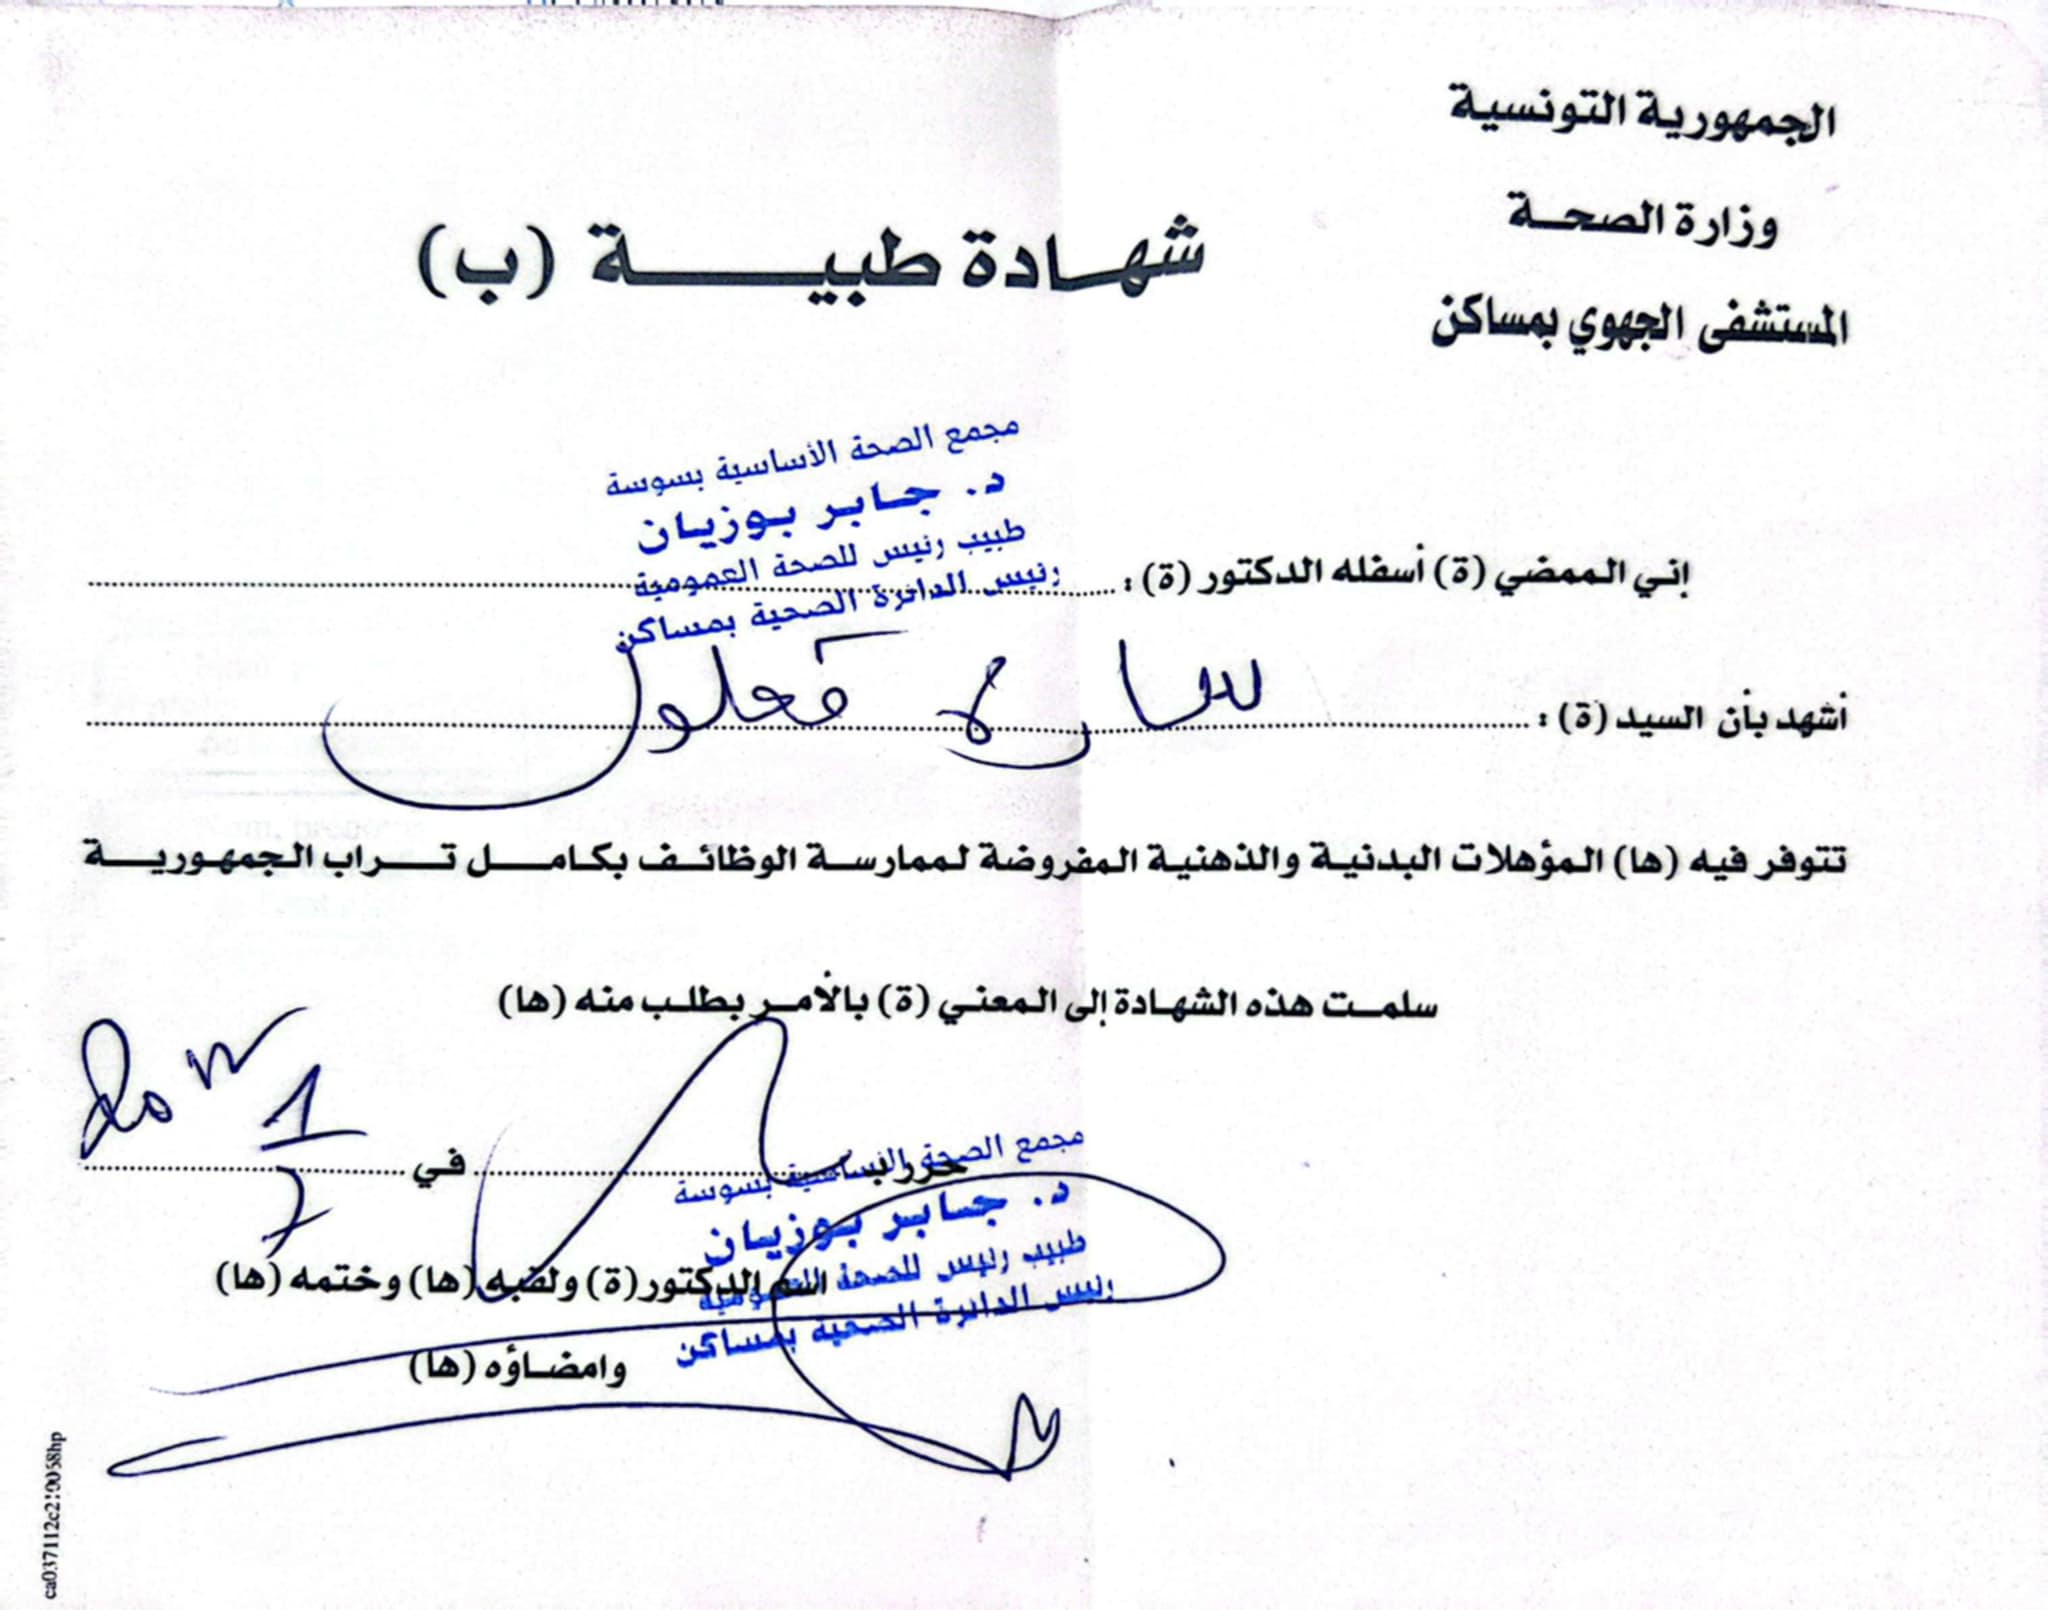 الجمهورية التونسية
وزارة الصحة
المستشفى الجهوي بمساكن
شهادة طبية (ب)
مجمع الصحة الأساسية بسوسة
د. جابر بوزيان
طبيب رئيس للصحة العمومية
رئيس الدائرة الصحية بمساكن
إني الممضي (ة) أسفله الدكتور (ة) :
أشهد بأن السيد (ة) : سارة قعلول
تتوفر فيه (ها) المؤهلات البدنية والذهنية المفروضة لممارسة الوظائف بكامل تراب الجمهورية
سلمت هذه الشهادة إلى المعني (ة) بالأمر بطلب منه (ها)
حرر ب في
مجمع الصحة الأساسية بسوسة
د. جابر بوزيان
طبيب رئيس للصحة العمومية
رئيس الدائرة الصحية بمساكن
اسم الدكتور (ة) ولقبه (ها) وختمه (ها)
وامضاؤه (ها)